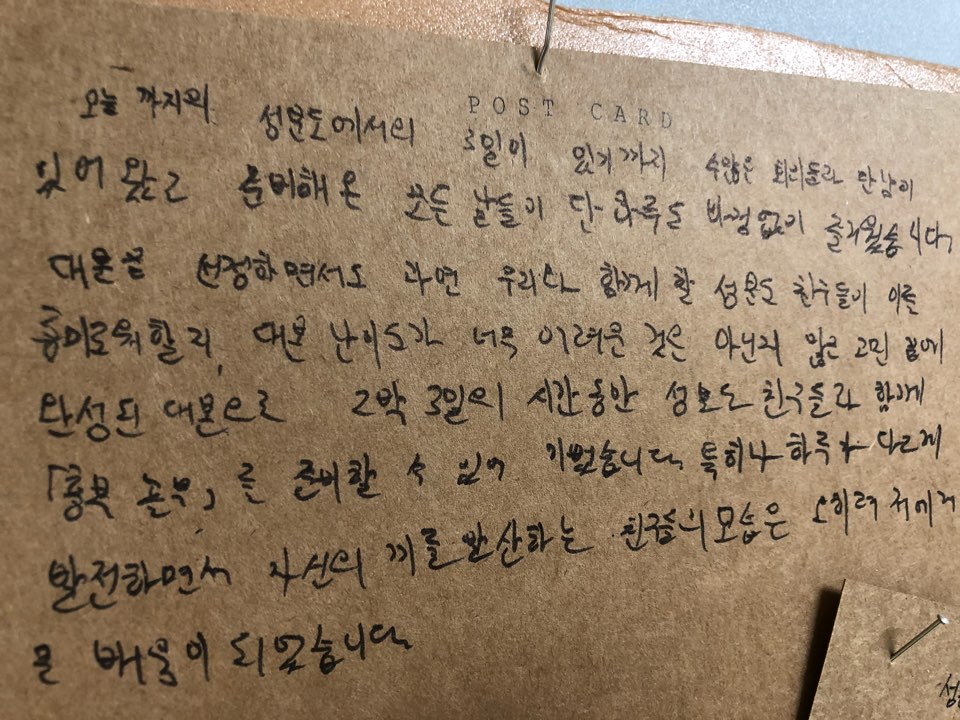 POST CARD
오늘 까지의 성문도에서의 3일이 있기까지 수많은 회의들과 만남이
있어 왔고 준비해 온 모든 날들이 단 하루도 빠짐없이 즐거웠습니다.
대본을 선정하면서도 과연 우리와 함께 할 성문도 친구들이 이를
흥미로워할지, 대본 난이도가 너무 어려운 것은 아닌지 많은 고민 끝에
완성된 대본으로 2박 3일의 시간동안 성문도 친구들과 함께
「흥부 놀부」를 준비할 수 있어 기뻤습니다. 특히나 하루가 다르게
발전하면서 자신의 끼를 발산하는 친구들의 모습은 오히려 저에게
큰 배움이 되었습니다.